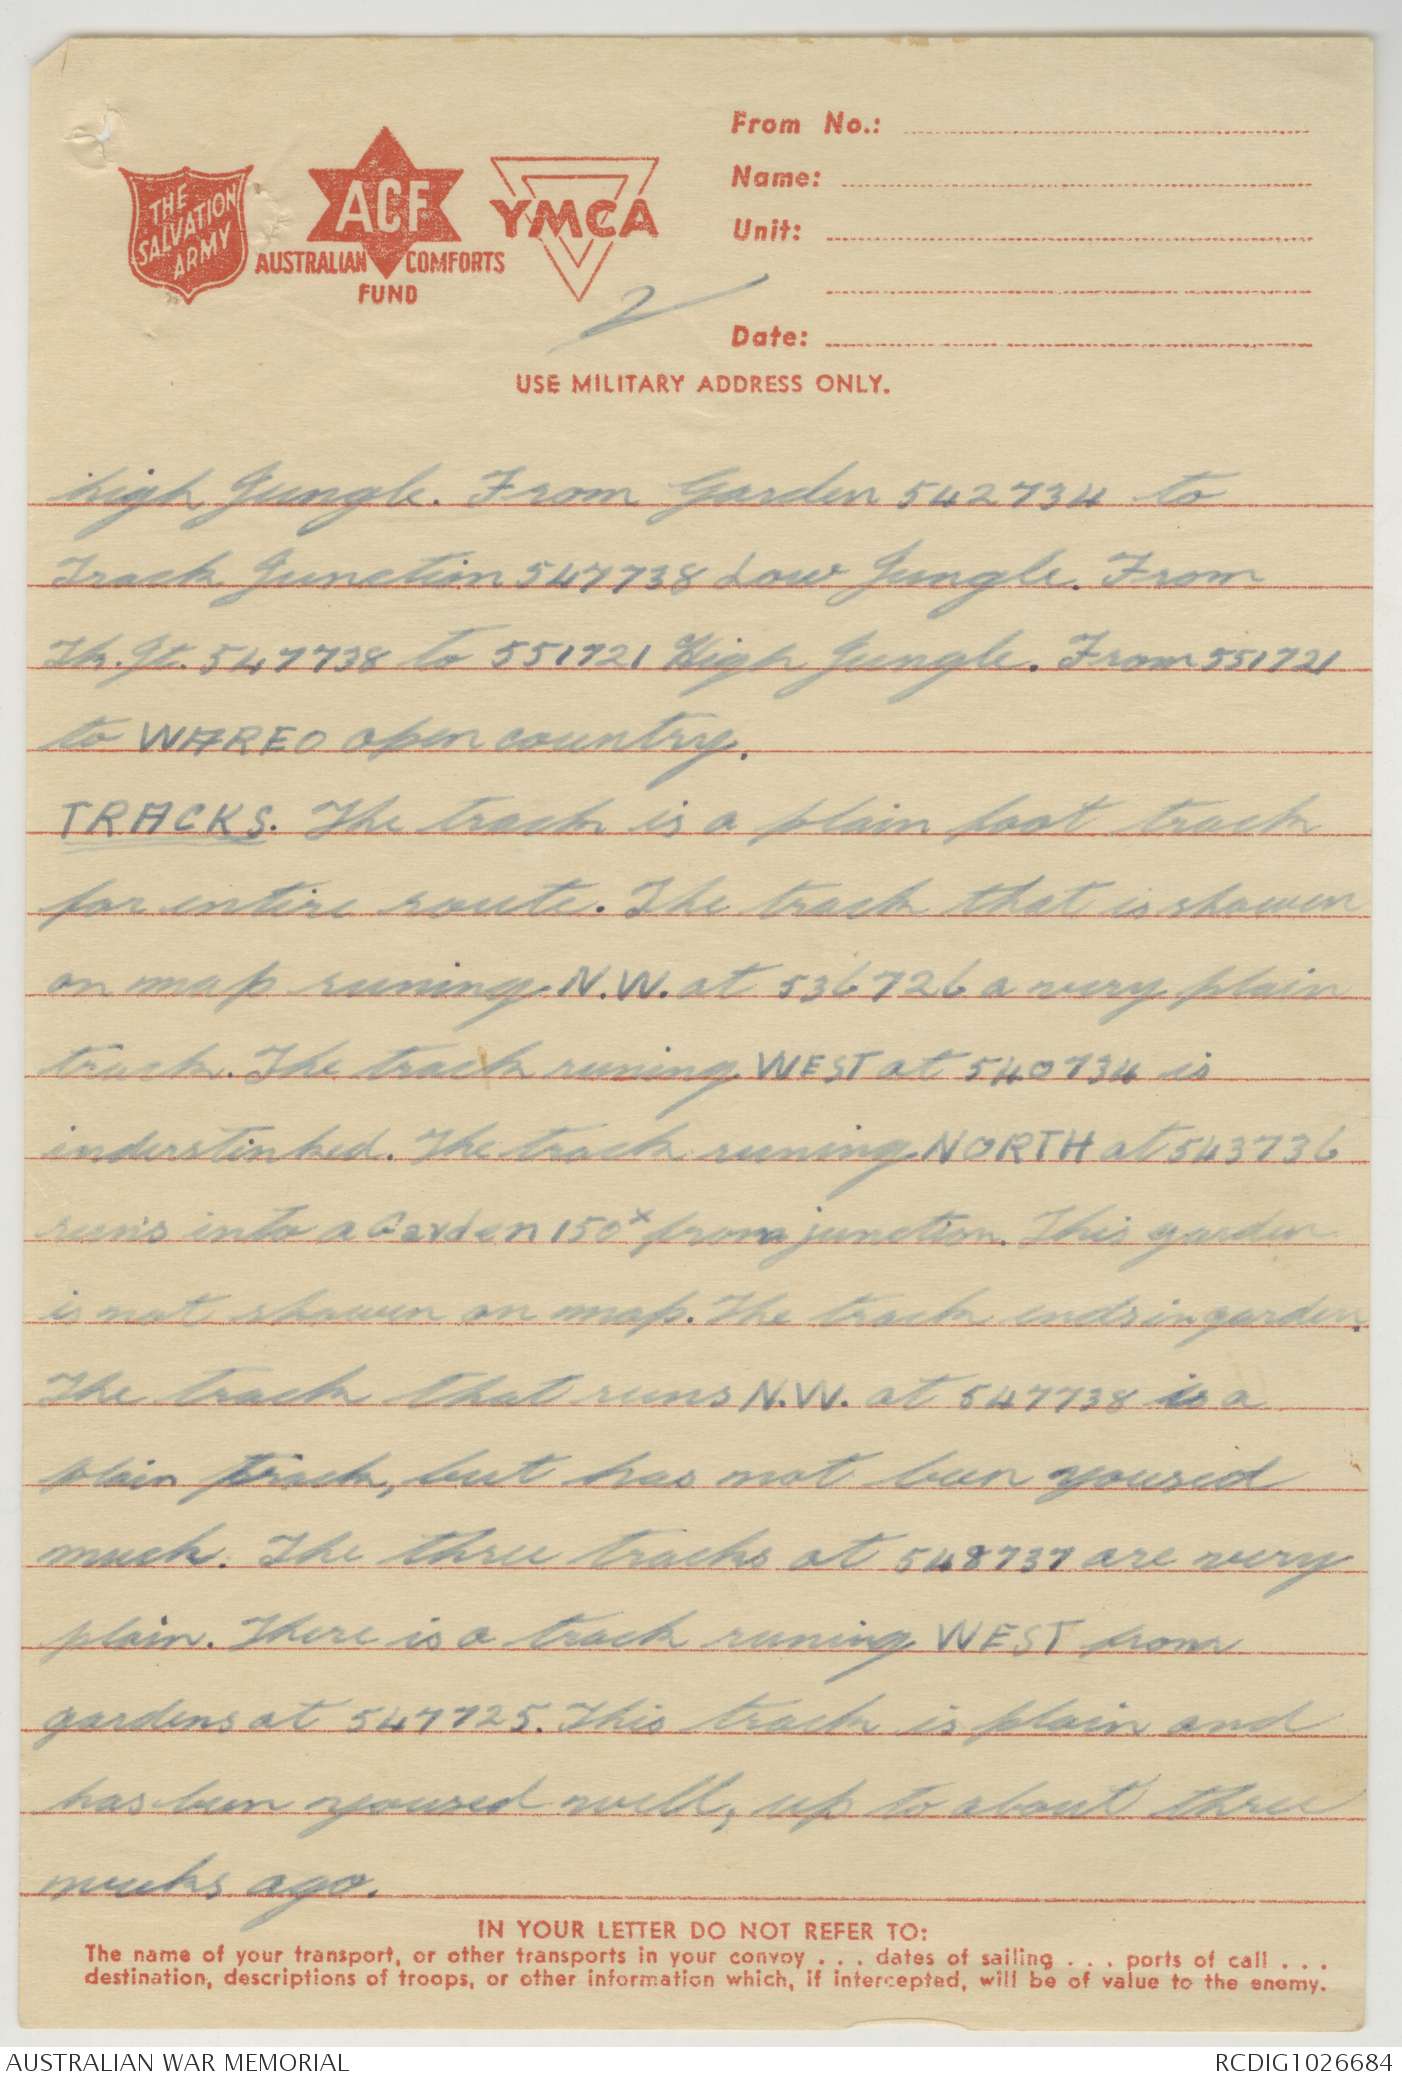 THE
SALVATION
ARMY
ACF
AUSTRALIAN COMFORTS
FUND
YMCA
From No.:
Name:
Unit:
Date:
2
USE MILITARY ADDRESS ONLY.
high Jungle. From Garden 542734 to
Track Junction 547738 Low Jungle. From
Tk. Jt. 547738 to 551721 High Jungle. From 551721
to WAREO open country.
TRACKS. The track is a plain foot track
for entire route. The track that is showen
on map runing N.W. at 536726 a very plain
track. The track runing WEST at 540734 is
inderstinked. The track runing NORTH at 543736
runs into a Garden 150x from junction. This garden
is not showen on map. The track ends in garden.
The track that runs N.W. at 547738 is a
plain track, but has not been yoused
much. The three tracks at 548737 are very
plain. There is a track runing WEST from
gardens at 547725. This track is plain and
has been yoused well, up to about three
weeks ago.
IN YOUR LETTER DO NOT REFER TO:
The name of your transport, or other transports in your convoy . . . dates of sailing . . . ports of call . . .
destination, descriptions of troops, or other information which, if intercepted, will be of value to the enemy.
AUSTRALIAN WAR MEMORIAL
RCDIG1026684